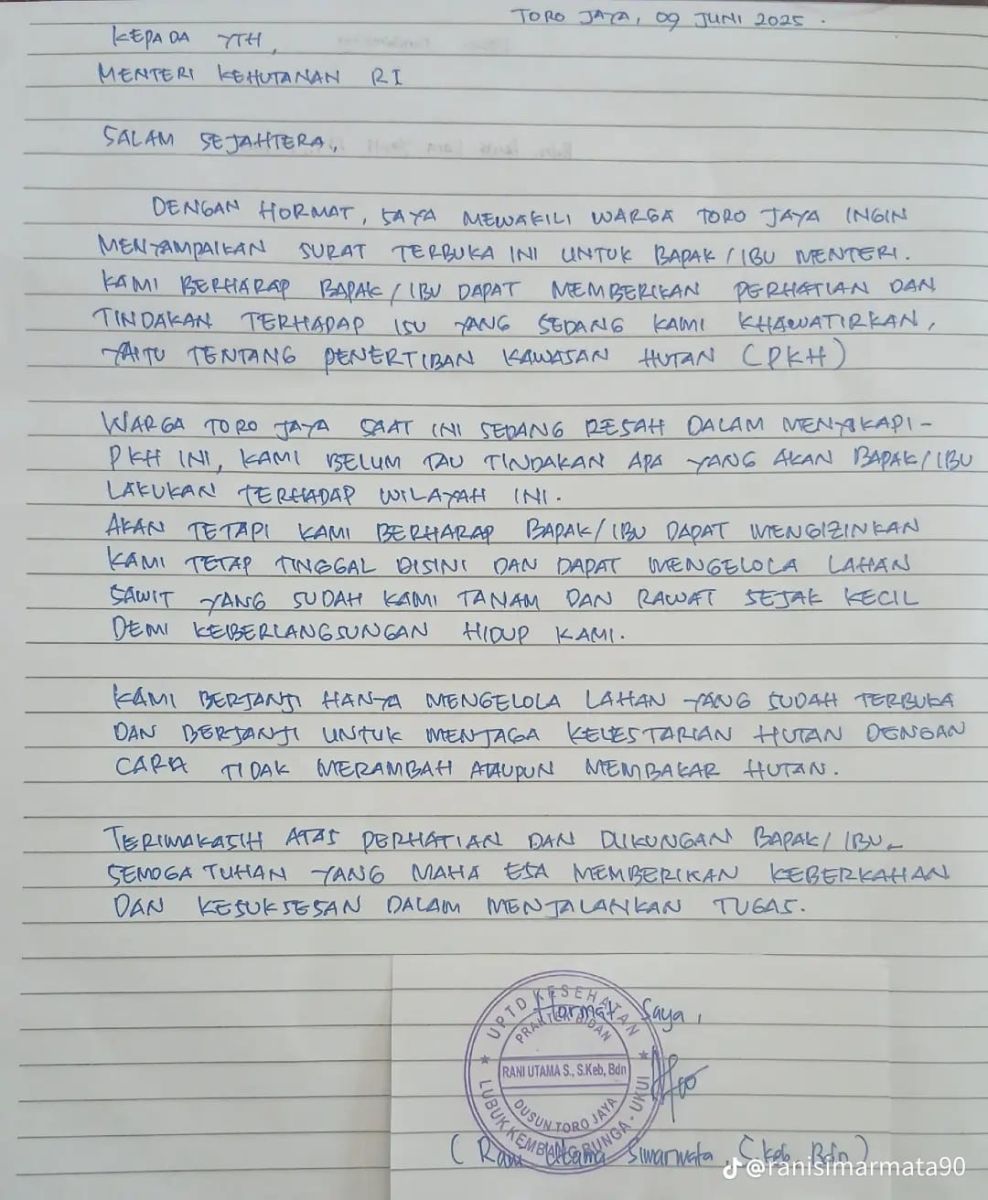 TORO JAYA, 09 JUNI 2025.
KEPADA YTH,
MENTERI KEHUTANAN RI
SALAM SEJAHTERA,
DENGAN HORMAT, SAYA MEWAKILI WARGA TORO JAYA INGIN
MENYAMPAIKAN SURAT TERBUKA INI UNTUK BAPAK/IBU MENTERI.
KAMI BERHARAP BAPAK/IBU DAPAT MEMBERIKAN PERHATIAN DAN
TINDAKAN TERHADAP ISU YANG SEDANG KAMI KHAWATIRKAN,
YAITU TENTANG PENERTIBAN KAWASAN HUTAN (PKH)
WARGA TORO JAYA SAAT INI SEDANG RESAH DALAM MENYIKAPI-
PKH INI, KAMI BELUM TAU TINDAKAN APA YANG AKAN BAPAK/IBU
LAKUKAN TERHADAP WILAYAH INI.
AKAN TETAPI KAMI BERHARAP BAPAK/IBU DAPAT MENGIZINKAN
KAMI TETAP TINGGAL DISINI DAN DAPAT MENGELOLA LAHAN
SAWIT YANG SUDAH KAMI TANAM DAN RAWAT SEJAK KECIL
DEMI KEBERLANGSUNGAN HIDUP KAMI.
KAMI BERJANJI HANYA MENGELOLA LAHAN YANG SUDAH TERBUKA
DAN BERJANJI UNTUK MENJAGA KELESTARIAN HUTAN DENGAN
CARA TIDAK MERAMBAH ATAUPUN MEMBAKAR HUTAN.
TERIMAKASIH ATAS PERHATIAN DAN DUKUNGAN BAPAK/IBU
SEMOGA TUHAN YANG MAHA ESA MEMBERIKAN KEBERKAHAN
DAN KESUKSESAN DALAM MENJALANKAN TUGAS.
Hormat Saya,
UPTD KESEHATAN
PRAKTEK BIDAN
RANI UTAMA S., S.Keb, Bdn
DUSUN TORO JAYA
LUBUK KEMBANG BUNGA - UKUI
(Rani Utama Bdn)
@ranisimarmata90